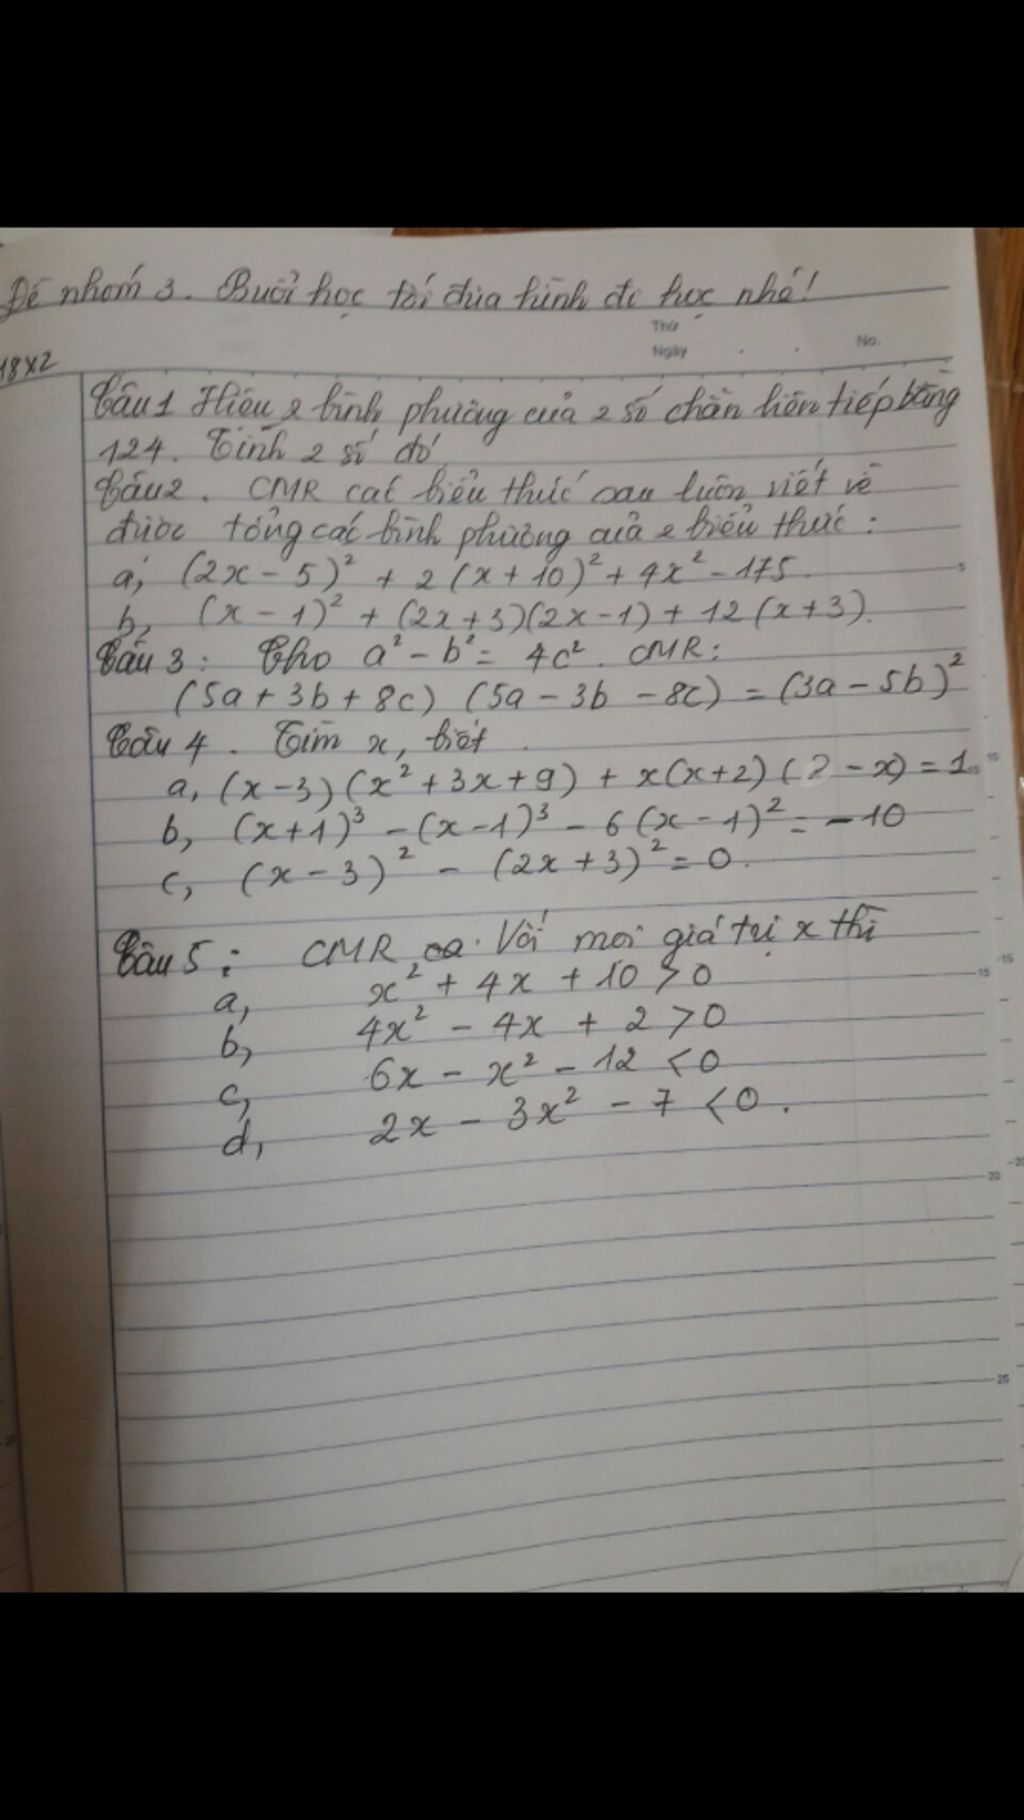 Đề nhóm 3. Buổi học tới đùa hình đi học nhá!
Thứ
Ngày . . No.
18x2
Câu 1 Hiệu 2 bình phương của 2 số chẵn liên tiếp bằng
124. Tính 2 số đó
Câu 2. CMR các biểu thức sau luôn viết về
được tổng các bình phương của 2 biểu thức:
a, (2x - 5)² + 2(x + 10)² + 4x² - 175
b, (x - 1)² + (2x + 3)(2x - 1) + 12(x + 3).
Câu 3: Cho a² - b² = 4c². CMR:
(5a + 3b + 8c) (5a - 3b - 8c) = (3a - 5b)²
Câu 4. Tìm x, biết
a, (x - 3)(x² + 3x + 9) + x(x + 2)(2 - x) = 1.
b, (x + 1)³ - (x - 1)³ - 6(x - 1)² = - 10
c, (x - 3)² - (2x + 3)² = 0.
Câu 5: CMR. Với mọi giá trị x thì
a, x² + 4x + 10 > 0
b, 4x² - 4x + 2 > 0
c, 6x - x² - 12 < 0
d, 2x - 3x² - 7 < 0.
5
10
15
20
25